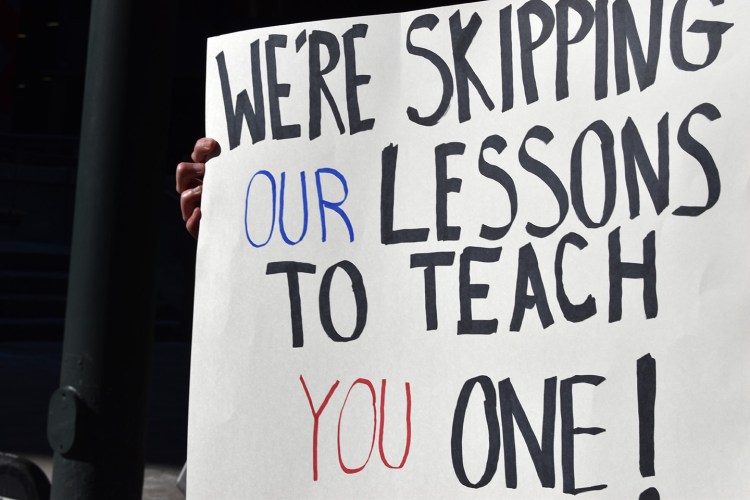 WE'RE SKIPPING
OUR LESSONS
TO TEACH
YOU ONE!